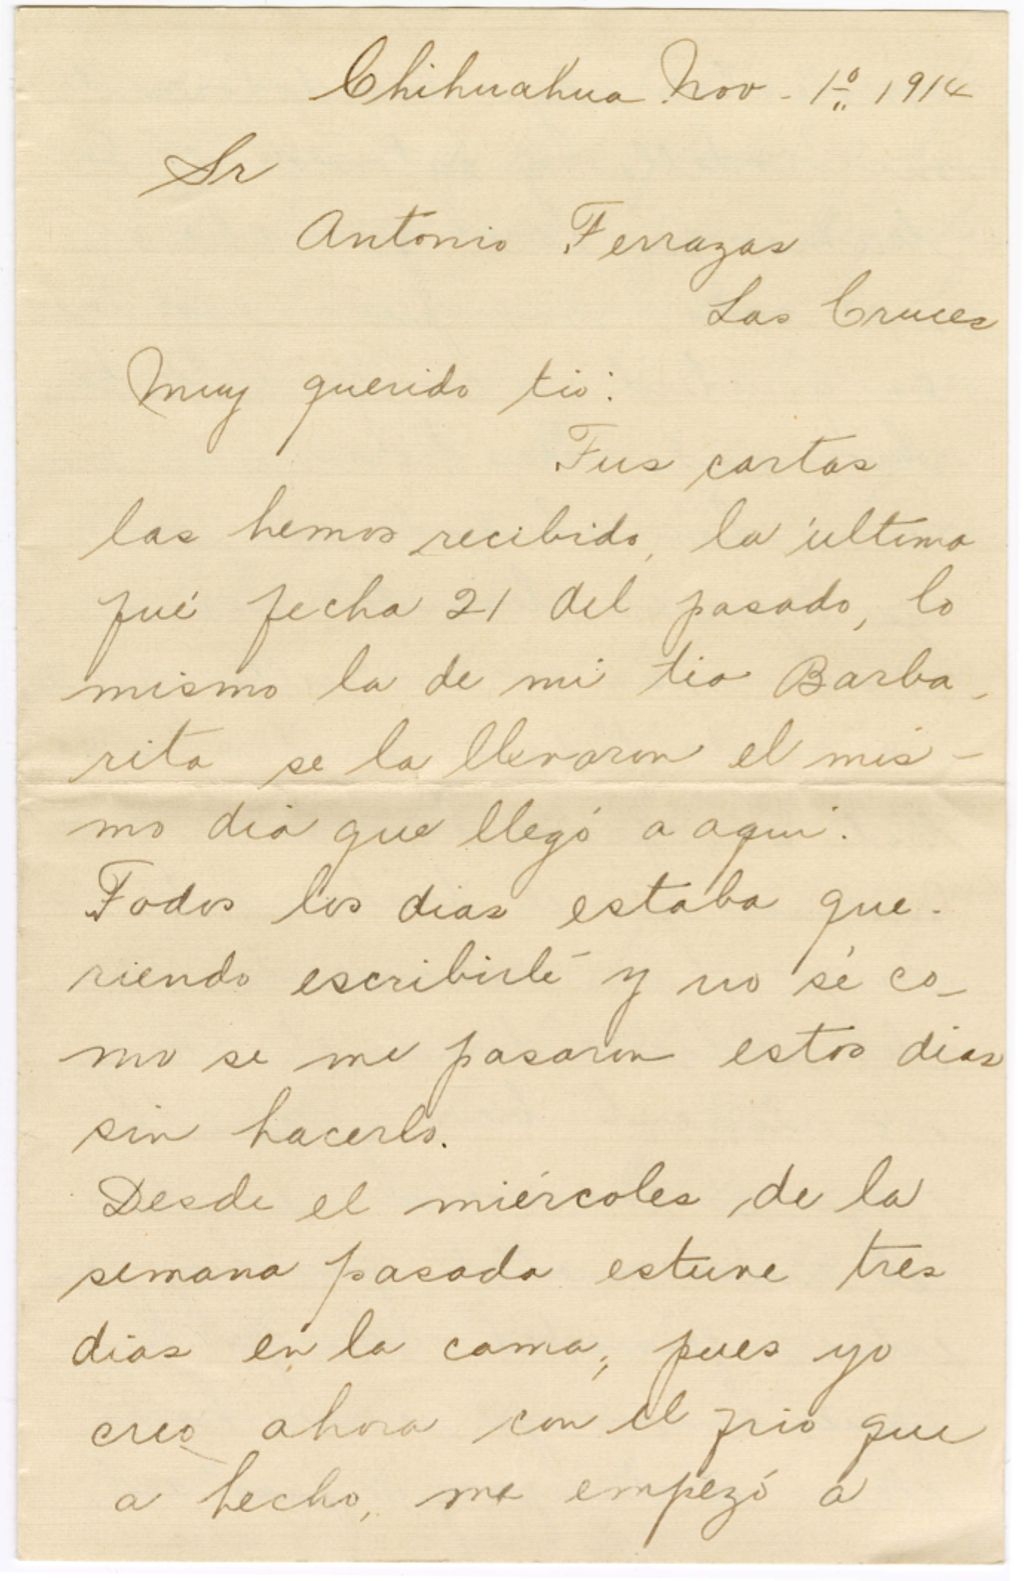 Chihuahua Nov - 1º 1914
Sr
Antonio Terrazas
Las Cruces
Muy querido tio:
Tus cartas
las hemos recibido, la última
fué fecha 21 del pasado, lo
mismo la de mi tia Barba-
rita se la llevaron el mis-
mo dia que llegó a aqui.
Todos los dias estaba que-
riendo escribirté y no sé co-
mo se me pasaron estos dias
sin hacerlo.
Desde el miércoles de la
semana pasada estuve tres
dias en la cama, pues yo
creo ahora con el frio que
a hecho, me empezó a